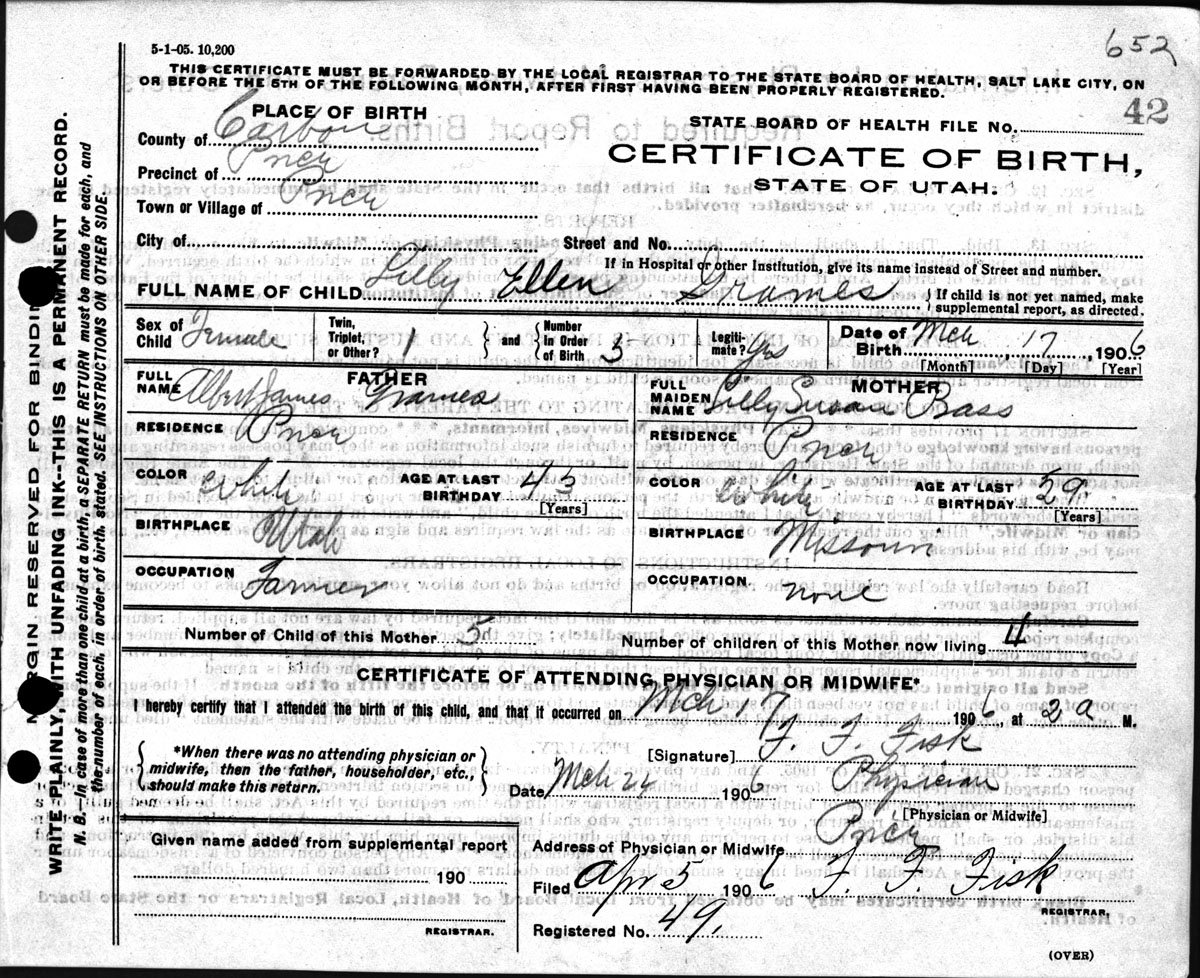 652
5-1-05. 10,200
THIS CERTIFICATE MUST BE FORWARDED BY THE LOCAL REGISTRAR TO THE STATE BOARD OF HEALTH, SALT LAKE CITY, ON
OR BEFORE THE 5TH OF THE FOLLOWING MONTH, AFTER FIRST HAVING BEEN PROPERLY REGISTERED.
42
PLACE OF BIRTH
STATE BOARD OF HEALTH FILE No.
County of Carbon
CERTIFICATE OF BIRTH,
STATE OF UTAH.
Precinct of Price
Town or Village of Price
City of Street and No.
If in Hospital or other Institution, give its name instead of Street and number.
FULL NAME OF CHILD Lilly Ellen Grames { If child is not yet named, make supplemental report, as directed.
Sex of Child Female Twin, Triplet, or Other? 1 } and { Number in Order of Birth 5 Legitimate? Yes Date of Birth Mch 17, 1906
[Month] [Day] [Year]
FATHER
FULL NAME Albert James Grames
RESIDENCE Price
COLOR White AGE AT LAST BIRTHDAY 43
[Years]
BIRTHPLACE Utah
OCCUPATION Farmer
MOTHER
FULL MAIDEN NAME Lilly Susan Bass
RESIDENCE Price
COLOR White AGE AT LAST BIRTHDAY 29
[Years]
BIRTHPLACE Missouri
OCCUPATION none
Number of Child of this Mother 5 Number of children of this Mother now living 4
CERTIFICATE OF ATTENDING PHYSICIAN OR MIDWIFE*
I hereby certify that I attended the birth of this child, and that it occurred on Mch 17 1906, at 2 a M.
{ *When there was no attending physician or midwife, then the father, householder, etc., should make this return. }
[Signature] F. F. Fisk
Date Mch 24 1906 Physician
[Physician or Midwife]
Given name added from supplemental report
190
REGISTRAR.
Address of Physician or Midwife Price
Filed Apr 5 1906 F. F. Fisk
REGISTRAR.
Registered No. 49.
(OVER)
MARGIN RESERVED FOR BINDING
WRITE PLAINLY, WITH UNFADING INK--THIS IS A PERMANENT RECORD.
N. B.—In case of more than one child at a birth, a SEPARATE RETURN must be made for each, and
the number of each, in order of birth, stated. SEE INSTRUCTIONS ON OTHER SIDE.